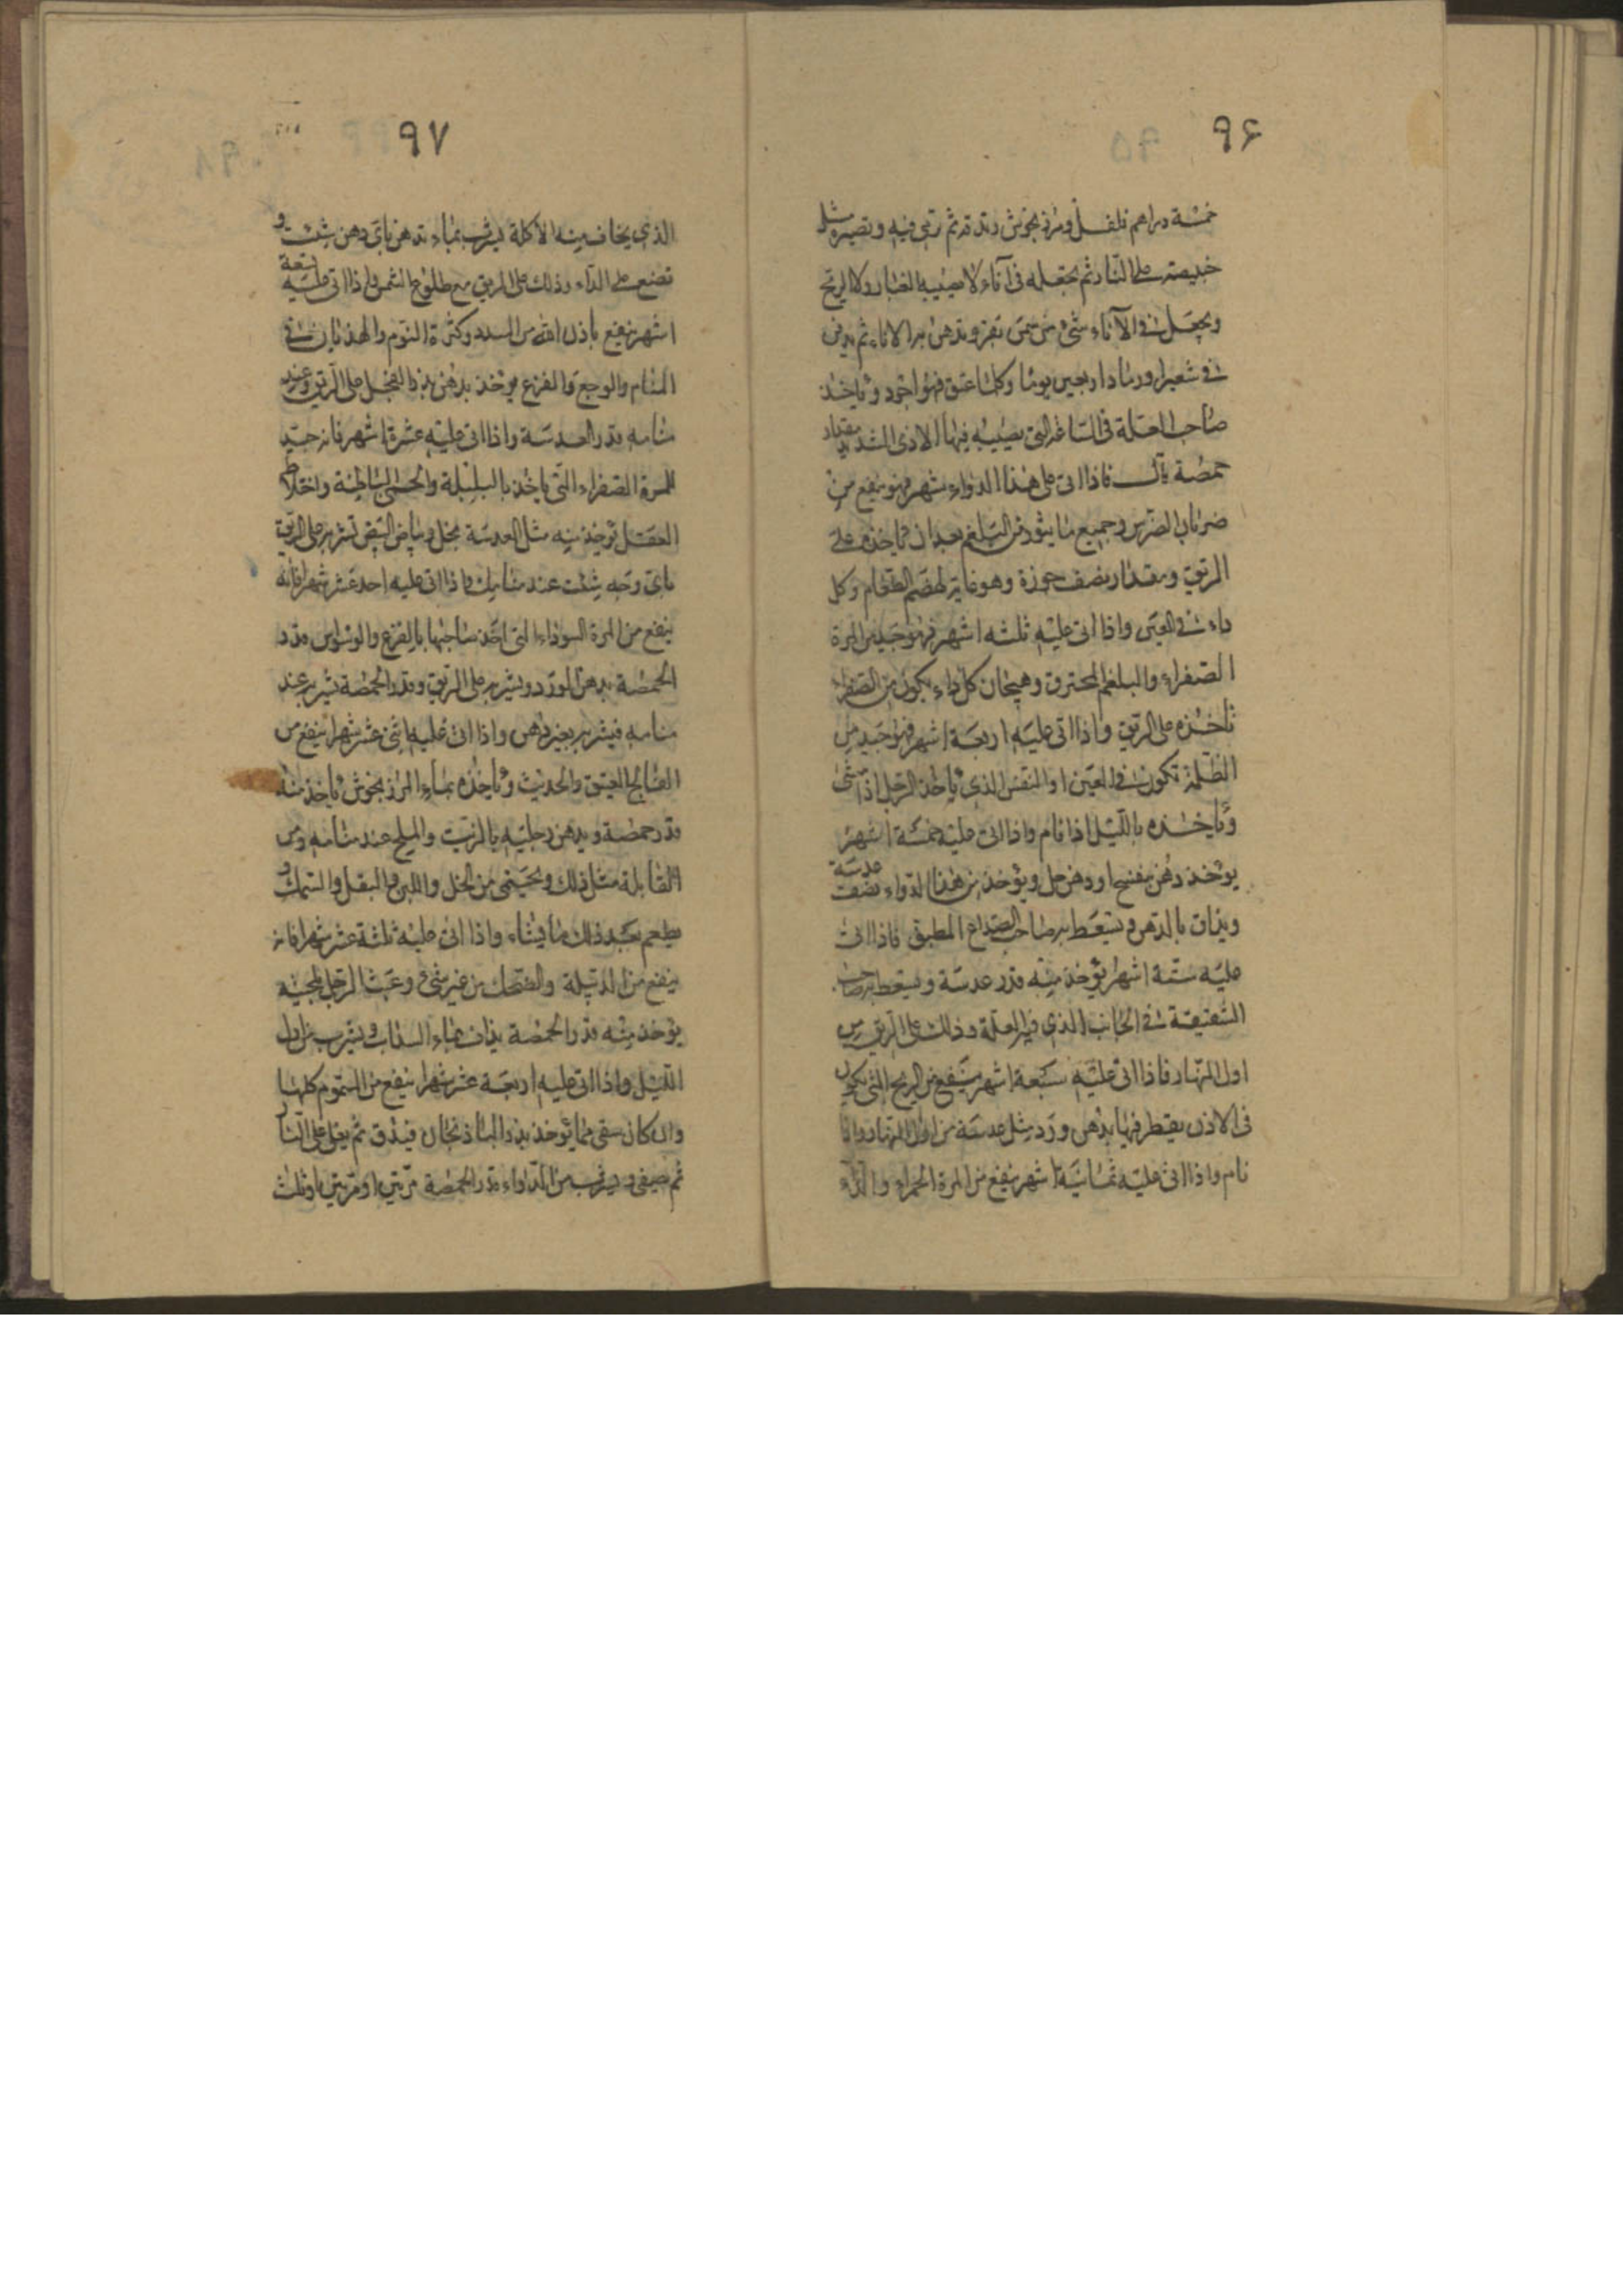 ٩۶
خمسة دراهم فلفل ومرزنجوش وتدقه ثم ترمي فيه وتصيره مثل
خبيصة على النار ثم تجعله في اناء لا يصيبه الغبار ولا الريح
ويجعل في الاناء شئ من سمن بقر وتدهن به الاناء ثم يدفن
في شعير او رماد اربعين يوما وكلما عتق فهو اجود وياخذ
صاحب العلة في الساعة التي يصيبه فيها الاذى الشديد مقدار
حمصة قال فاذا اتى على هذا الدواء شهر فهو ينفع من
ضربان الضرس وجميع ما يثور من البلغم بعد ان ياخذه على
الريق ومقدار نصف جوزة وهو غاية لهضم الطعام وكل
داء في العين واذا اتى عليه ثلثه اشهر فهو جيد من المرة
الصفراء والبلغم المحترق وهيجان كل داء يكون من الصفراء
تاخذه على الريق واذا اتى عليه اربعة اشهر فهو جيد من
الظلمة تكون في العين او النفس الذي ياخذ الرجل اذا مشى
وياخذه بالليل اذا نام واذا اتى عليه خمسة اشهر
يؤخذ دهن بنفسج او دهن حل ويؤخذ من هذا الدواء نصف عدسة
ويداف بالدهن ويسعط به صاحب الصداع المطبق فاذا اتى
عليه ستة اشهر يؤخذ منه قدر عدسة ويسعط به صاحب
الشقيقة في الجانب الذي فيه العلة وذلك على الريق من
اول النهار فاذا اتى عليه سبعة اشهر ينفع من الريح التي يكون
في الاذن يقطر فيها بدهن ورد مثل عدسة من اول النهار واذا
نام واذا اتى عليه ثمانية اشهر ينفع من المرة الحمراء والداء
٩٧
الذي يخاف منه الاكلة يشرب بماء تدهن باى دهن شئت و
تضع على الداء وذلك على الريق مع طلوع الشمس واذا اتى عليه تسعة
اشهر ينفع باذن الله من السدد وكثرة النوم والهذيان في
المنام والوجع والفزع يؤخذ بدهن بذر الفجل على الريق وعند
منامه قدر العدسة واذا اتى عليه عشرة اشهر فانه جيد
للمرة الصفراء التي ياخذ بالبلبلة والحمى الباطنة واختلاط
العقل تؤخذ منه مثل العدسة بخل وبياض البيض تشربه على الريق
باى وجه شئت عند منامك واذا اتى عليه احد عشر شهرا فانه
ينفع من المرة السوداء التي اخذ صاحبها بالفزع والوسواس قدر
الحمصة بدهن الورد ويشربه على الريق وقدر الحمصة يشربه عند
منامه فيشربه بغير دهن واذا اتى عليه اثنى عشر شهرا ينفع من
الفالج العتيق والحديث وياخذه بماء المرزنجوش ياخذ منه
قدر حمصة ويدهن رجليه بالزيت والملح عند منامه ومن
القابلة مثل ذلك ويحتمى من الخل واللبن والبقل والسمك و
يطعم بعد ذلك ما يشاء واذا اتى عليه ثلثة عشر شهرا فانه
ينفع من الدبيلة والضحك من غير شئ وعبث الرجل بلحيته
يؤخذ منه قدر الحمصة يداف بماء السداب ويشرب من اول
الليل واذا اتى عليه اربعة عشر شهرا ينفع من السموم كلها
وان كان سقى مما يؤخذ بذر الباذنجان فيدق ثم يغلى على النار
ثم يصفى ويشرب من الدواء بقدر الحمصة مرتين او مرتين او ثلث